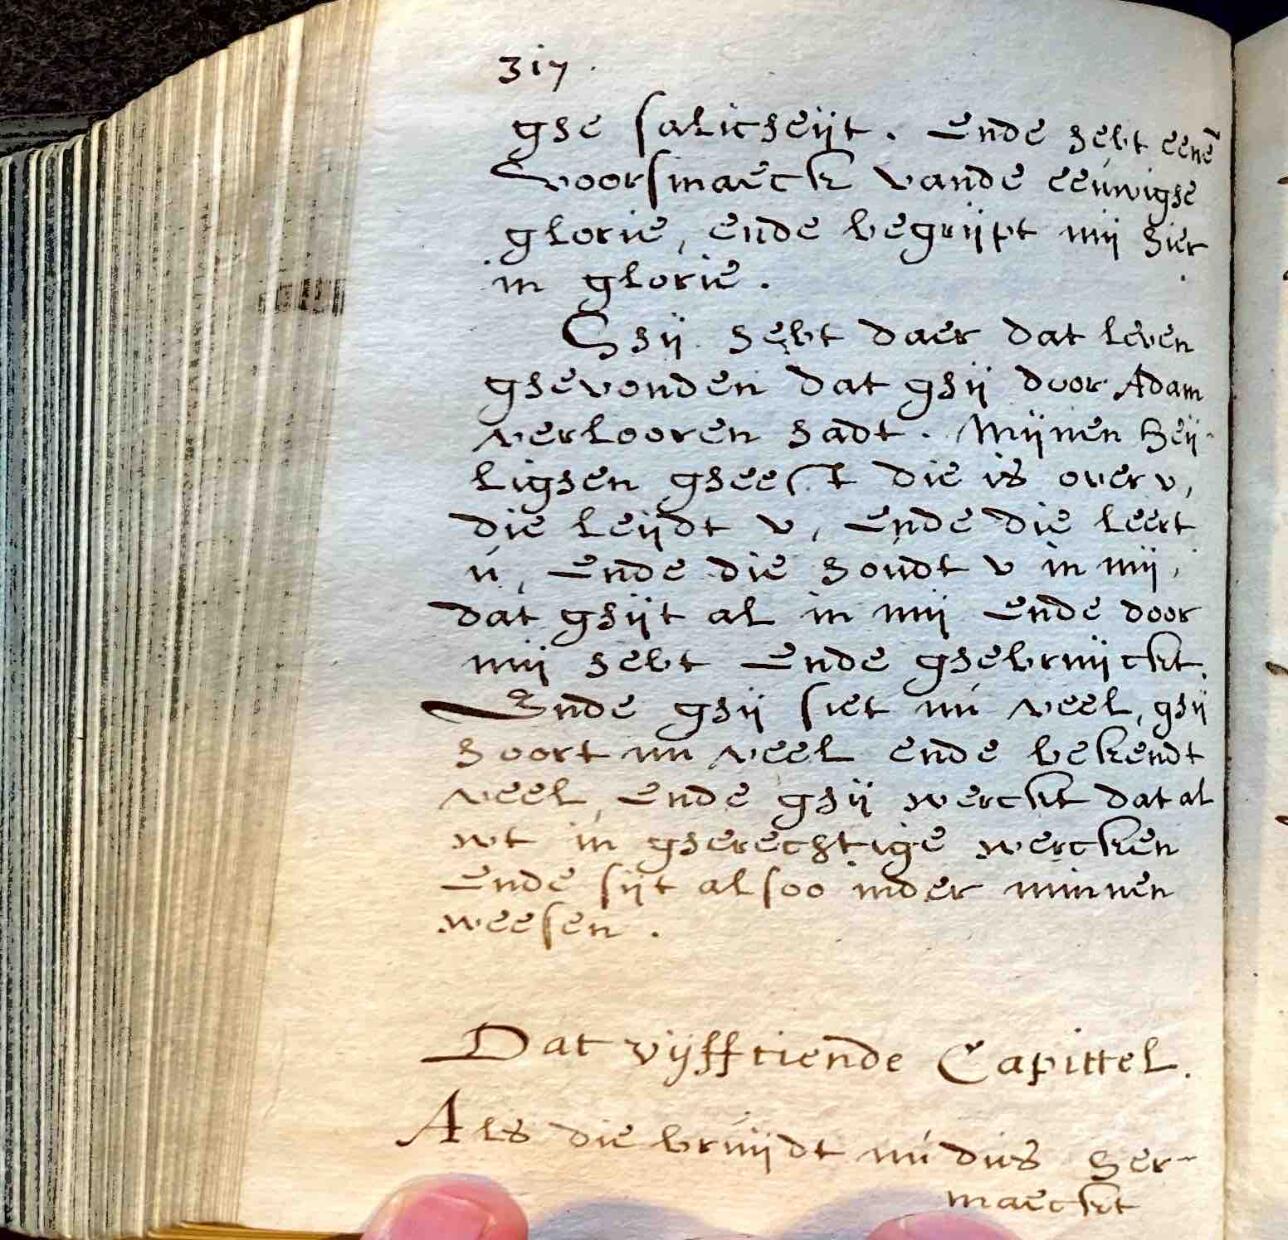 317.
ghe salicheijt. Ende hebt eenē
Voorsmaeck vande eeuwighe
glorie, ende begrijpt mij hier
in glorie.
Ghij hebt daer dat leven
ghevonden dat ghij door Adam
verlooren hadt. Mijnen heij-
lighen gheest die is over v,
die leijdt v, Ende die leert
ú, Ende die houdt v in mij,
dat ghijt al in mij Ende door
mij hebt Ende ghebruijckt.
Ende ghij siet nú veel, ghij
hoort nu veel ende bekendt
veel, Ende ghij werckt dat al
wt in gherechtige wercken
Ende sijt alsoo inder minnen
weesen.
Dat vijfftiende Capittel.
Als die bruijdt nú dus her-
maeckt